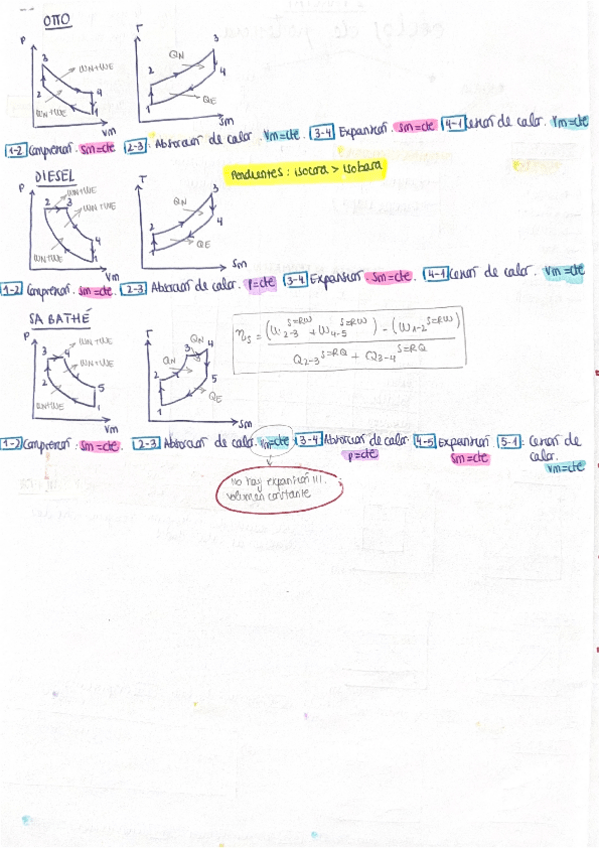 OTTO
P T
QN
3 WN+WE 3
2 4 2 4
WN+WE 1 1 QE
Vm Sm
1-2 Compresión. Sm=cte 2-3: Absorción de calor. Vm=cte. 3-4 Expansión. Sm=cte 4-1 Cesión de calor. Vm=cte
DIESEL Pendientes: isocora > isobara
P WN+WE T
2 3 WN+WE QN 3
4 2 4
WN+WE 1 1 QE
Vm Sm
1-2 Compresión. Sm=cte. 2-3 Absorción de calor. P=cte 3-4 Expansión. Sm=cte. 4-1 Cesión de calor. Vm=cte
SABATHÉ
P WN+WE T QN
3 4 WN+WE QN 3 4
2 5 2 5
WN+WE 1 1 QE
Vm Sm
ηs = (W2-3 S=RW + W4-5 S=RW) - (W1-2 S=RW)
Q2-3 S=RQ + Q3-4 S=RQ
1-2 Compresión: Sm=cte. 2-3 Absorción de calor. Vm=cte 3-4 Absorción de calor 4-5 Expansión 5-1: Cesión de
p=cte Sm=cte calor.
Vm=cte
No hay expansión!!!.
volumen constante